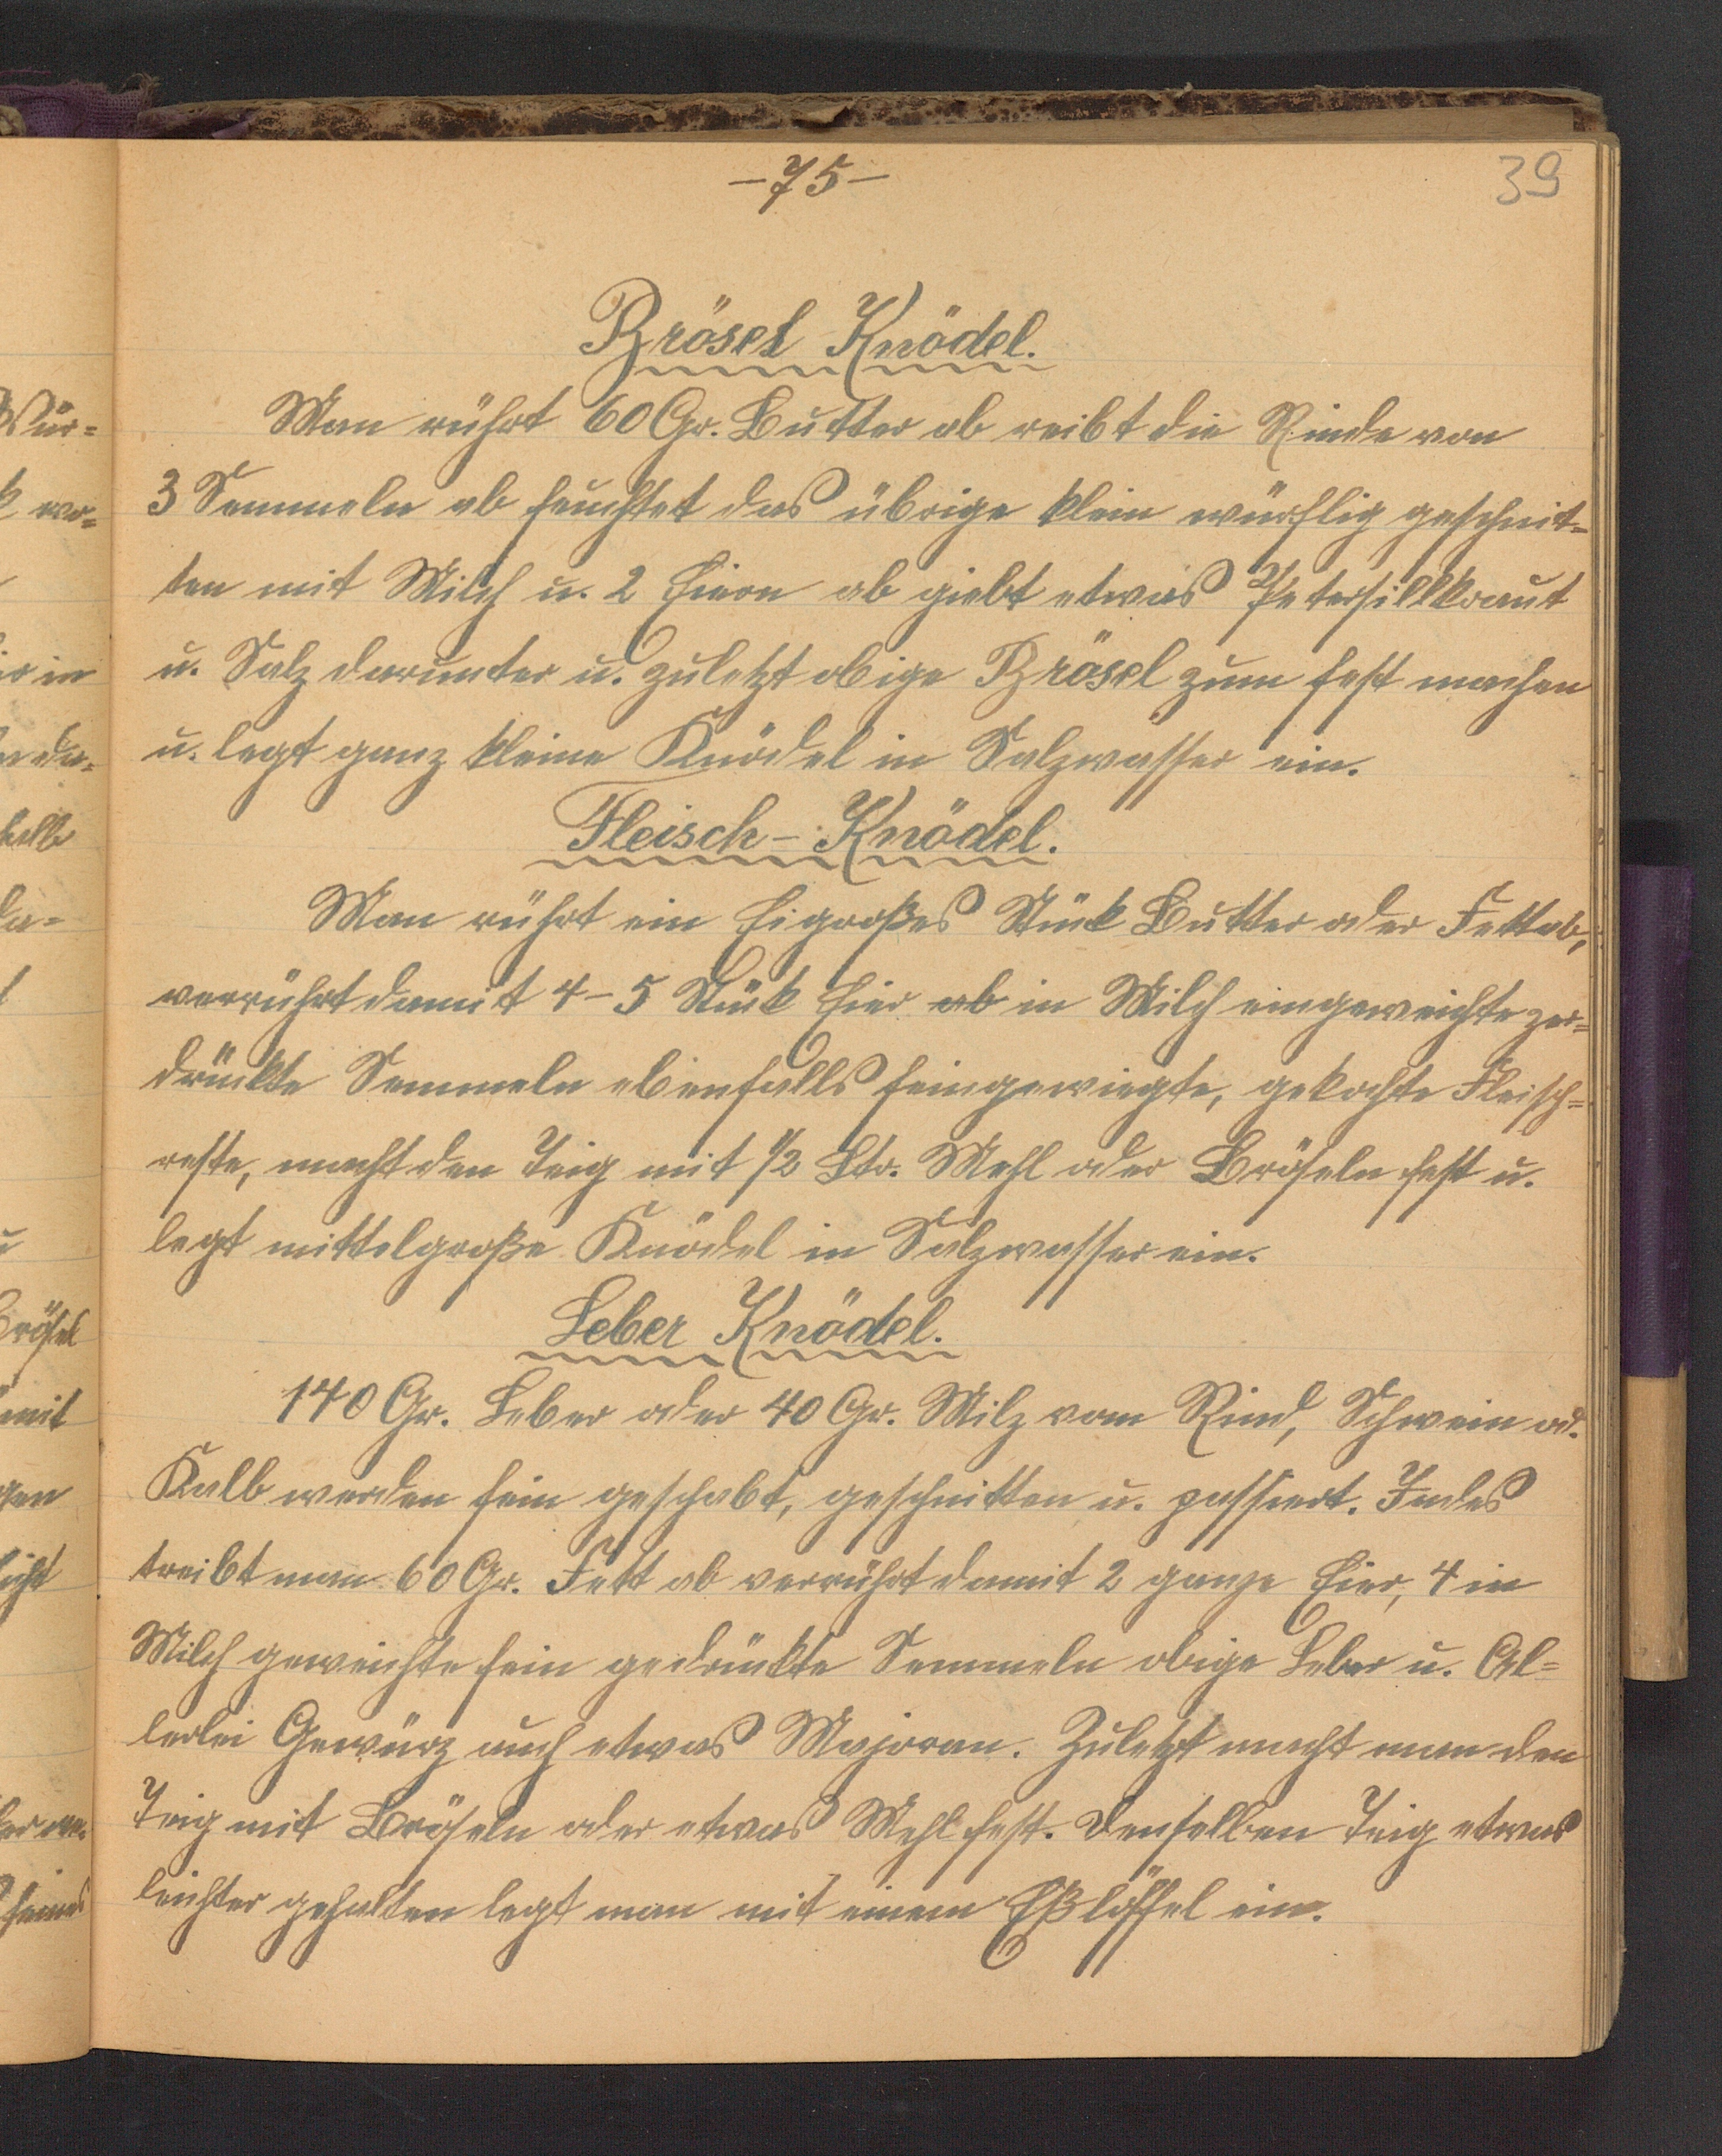 -75-
39
Brösel Knödel.
Man rührt 60 Gr. Butter ab reibt die Rinde von
3 Semmeln ab feuchtet das übrige klein würflig geschnit=
ten mit Milch u. 2 Eiern ab giebt etwas Petersillkraut
u. Salz darunter u. zuletzt obige Brösel zum fest machen
u. legt ganz kleine Knödel in Salzwasser ein.
Fleisch-Knödel.
Man rührt ein Eigroßes Stück Butter oder Fett ab,
verrührt damit 4-5 Stück Eier ab in Milch eingeweichte zer=
drückte Semmeln ebenfalls feingewiegte, gekochte Fleisch=
reste, macht den Teig mit 1/2 Ltr. Mehl oder Bröseln fest u.
legt mittelgroße Knödel in Salzwasser ein.
Leber Knödel.
140 Gr. Leber oder 40 Gr. Milz vom Rind, Schwein od.
Kalb werden fein geschabt, geschnitten u. passiert. Indes
treibt man 60 Gr. Fett ab verrührt damit 2 ganze Eier, 4 in
Milch geweichte fein gedrückte Semmeln obige Leber u. Al=
lerlei Gewürz auch etwas Majoran. Zuletzt macht man den
Teig mit Bröseln oder etwas Mehl fest. Denselben Teig etwas
leichter gehalten legt man mit einem Eßlöffel ein.